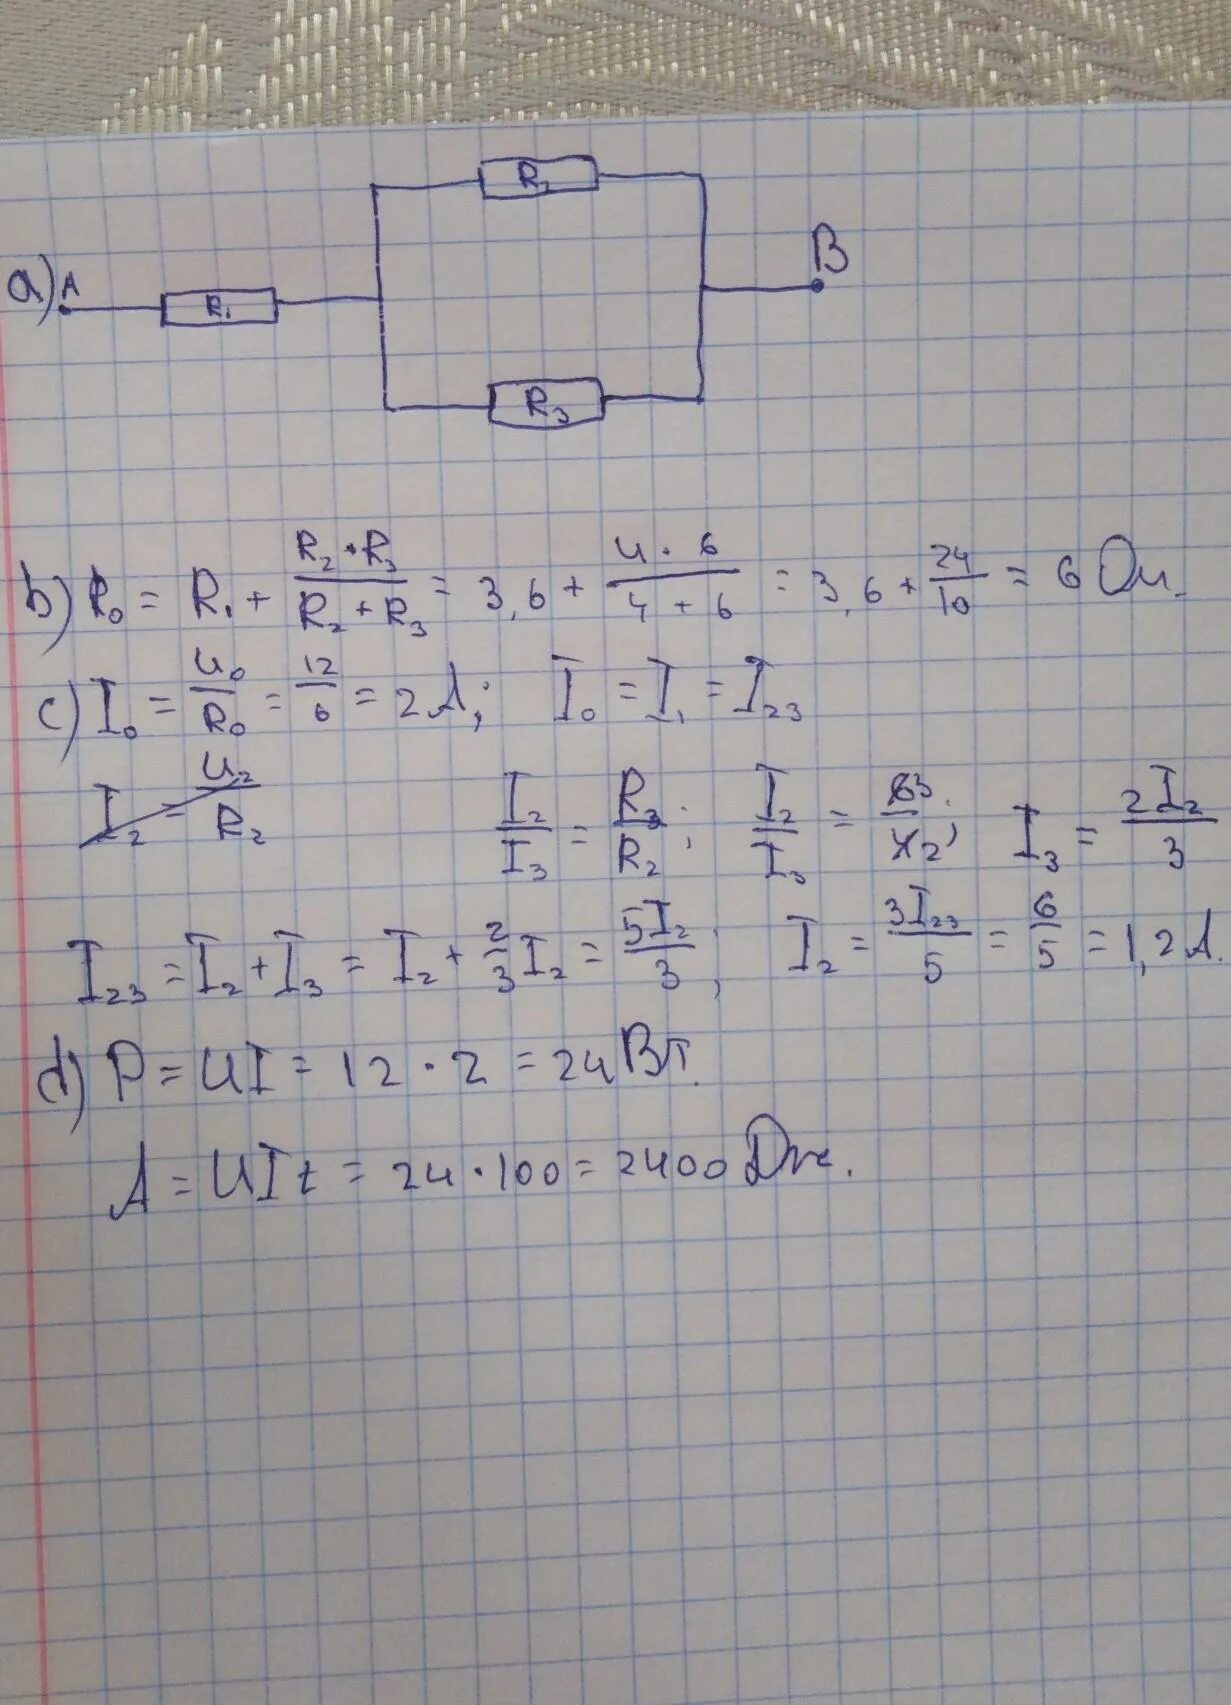 R₂
B
a) A
R₁
R₃
b) R₀ = R₁ + (R₂ · R₃)/(R₂ + R₃) = 3,6 + (4 · 6)/(4 + 6) = 3,6 + 24/10 = 6 Ом.
c) I₀ = U₀/R₀ = 12/6 = 2 А; I₀ = I₁ = I₂₃
I₂ = U₂/R₂ I₂/I₃ = R₃/R₂; I₂/I₃ = 3/2; I₃ = 2I₂/3
I₂₃ = I₂ + I₃ = I₂ + 2/3 I₂ = 5I₂/3; I₂ = 3I₂₃/5 = 6/5 = 1,2 А.
d) P = UI = 12 · 2 = 24 Вт.
A = UIt = 24 · 100 = 2400 Дж.